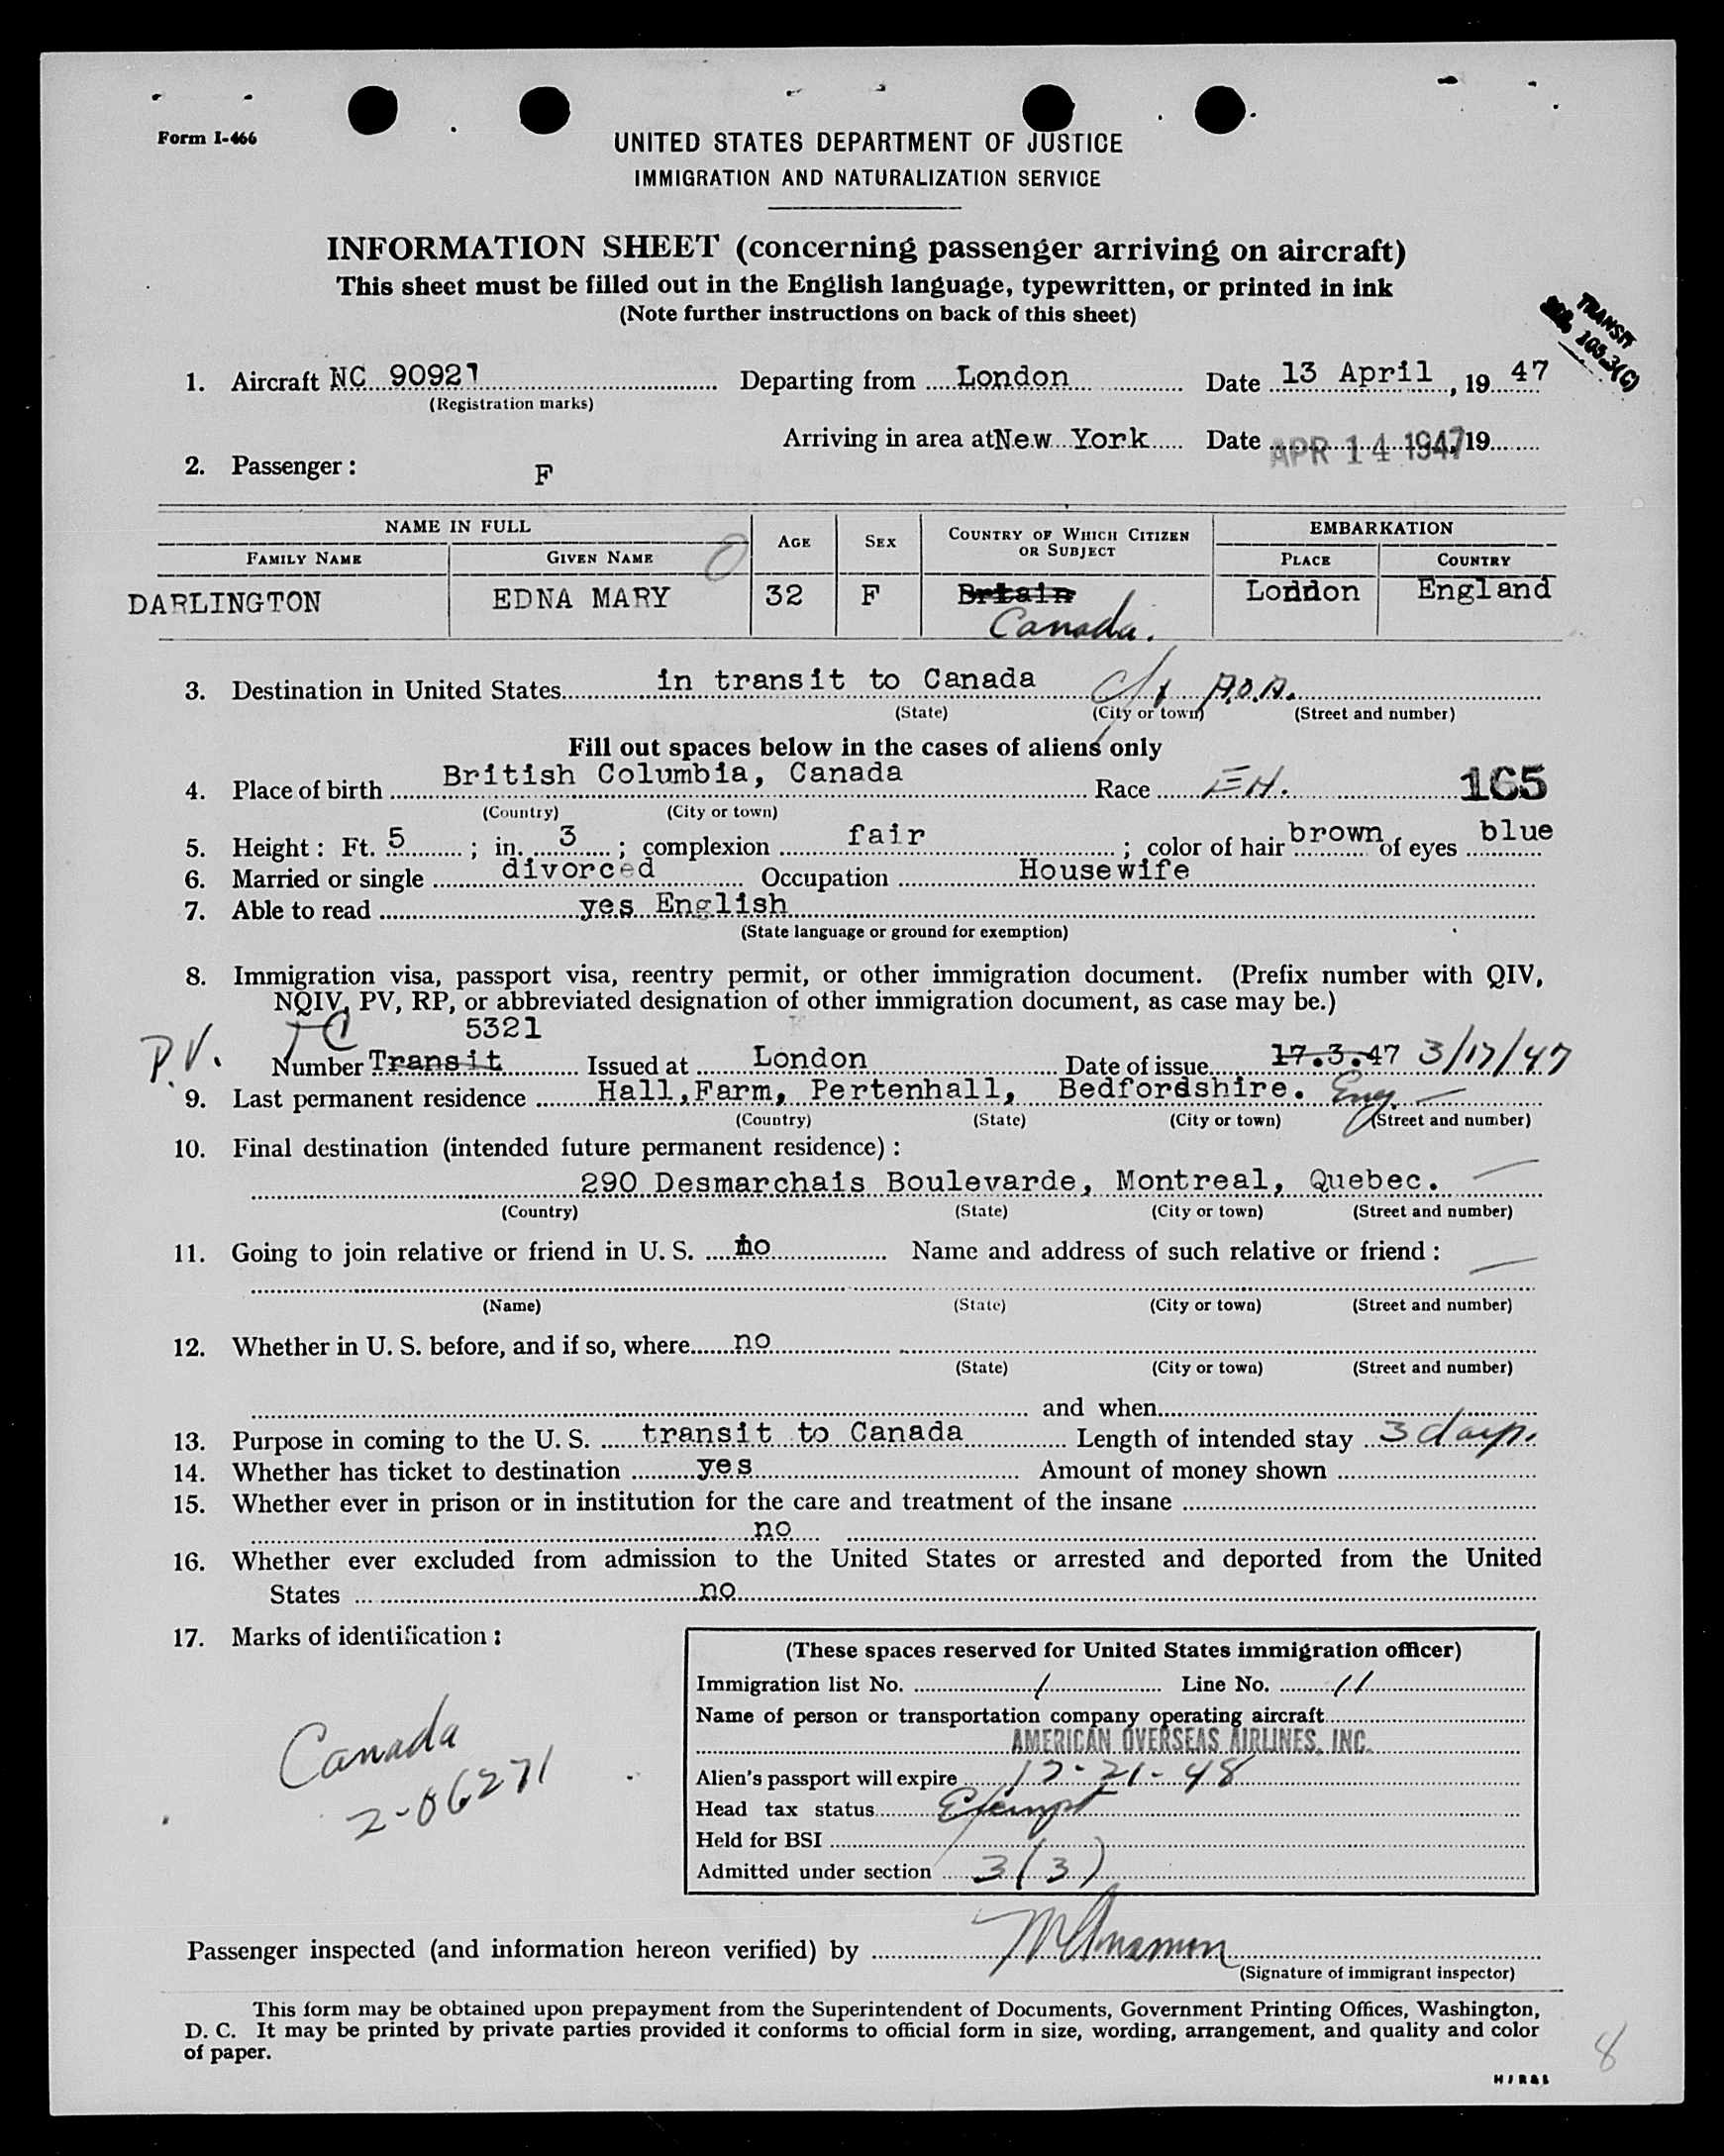 Form I-466
UNITED STATES DEPARTMENT OF JUSTICE
IMMIGRATION AND NATURALIZATION SERVICE
INFORMATION SHEET (concerning passenger arriving on aircraft)
This sheet must be filled out in the English language, typewritten, or printed in ink
(Note further instructions on back of this sheet)
TRANSIT
105.3(C)
1. Aircraft NC 90921 Departing from London Date 13 April, 19 47
(Registration marks)
Arriving in area at New York Date APR 14 1947 19
2. Passenger: F
NAME IN FULL AGE SEX COUNTRY OF WHICH CITIZEN OR SUBJECT EMBARKATION
FAMILY NAME GIVEN NAME PLACE COUNTRY
DARLINGTON EDNA MARY 32 F Britain London England
Canada.
3. Destination in United States in transit to Canada A.O.A.
(State) (City or town) (Street and number)
Fill out spaces below in the cases of aliens only
4. Place of birth British Columbia, Canada Race 165
(Country) (City or town)
5. Height: Ft. 5; in. 3; complexion fair; color of hair brown of eyes blue
6. Married or single divorced Occupation Housewife
7. Able to read yes English
(State language or ground for exemption)
8. Immigration visa, passport visa, reentry permit, or other immigration document. (Prefix number with QIV,
NQIV, PV, RP, or abbreviated designation of other immigration document, as case may be.)
5321
P.V. Number Transit Issued at London Date of issue 17.3.47 3/17/47
9. Last permanent residence Hall,Farm, Pertenhall, Bedfordshire. Eng.
(Country) (State) (City or town) (Street and number)
10. Final destination (intended future permanent residence):
290 Desmarchais Boulevarde, Montreal, Quebec.
(Country) (State) (City or town) (Street and number)
11. Going to join relative or friend in U. S. no Name and address of such relative or friend:
(Name) (State) (City or town) (Street and number)
12. Whether in U. S. before, and if so, where no
(State) (City or town) (Street and number)
and when
13. Purpose in coming to the U. S. transit to Canada Length of intended stay 3 days.
14. Whether has ticket to destination yes Amount of money shown
15. Whether ever in prison or in institution for the care and treatment of the insane
no
16. Whether ever excluded from admission to the United States or arrested and deported from the United
States no
17. Marks of identification:
(These spaces reserved for United States immigration officer)
Immigration list No. 1 Line No. 11
Name of person or transportation company operating aircraft
AMERICAN OVERSEAS AIRLINES, INC.
Alien's passport will expire 12-21-48
Head tax status Exempt
Held for BSI
Admitted under section 3(3)
Canada
2-06271
Passenger inspected (and information hereon verified) by
(Signature of immigrant inspector)
This form may be obtained upon prepayment from the Superintendent of Documents, Government Printing Offices, Washington,
D. C. It may be printed by private parties provided it conforms to official form in size, wording, arrangement, and quality and color
of paper.
8